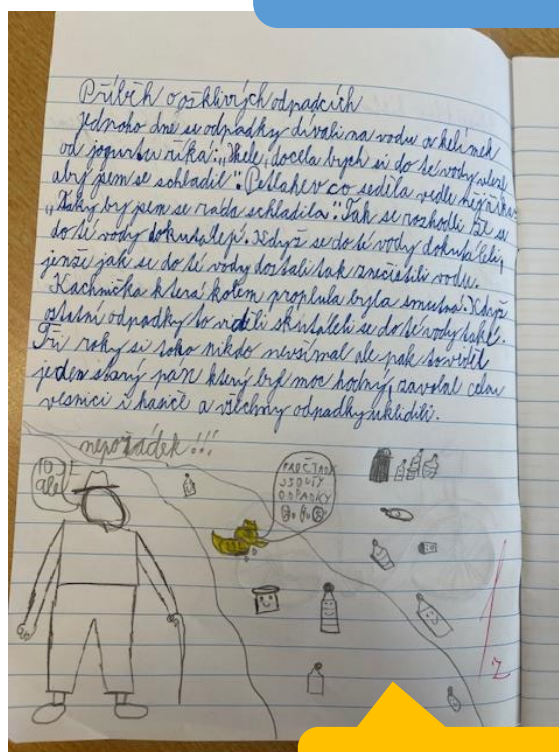 Příběh o ošklivých odpadcích
Jednoho dne se odpadky dívali na vodu a kelímek
od jogurtu říká: „Hele, docela bych si do té vody vlezl
aby jsem se schladil". Petlahev co seděla vedle něj říká:
„Taky by jsem se ráda schladila." Tak se rozhodli že se
do té vody dokutálejí. Když se do té vody dokutáleli,
jenže jak se do té vody dostali tak znečistili vodu.
Kachnička která kolem proplula byla smutná. Když
ostatní odpadky to viděli skutáleli se do té vody také.
Tři roky si toho nikdo nevšímal ale pak to viděl
jeden starý pán který byl moc hodný, zavolal celou
vesnici i hasiče a všechny odpadky uklidili.
nepořádek!!!
TO JE
ale
PROČ TADY
JSOU TY
ODPADKY